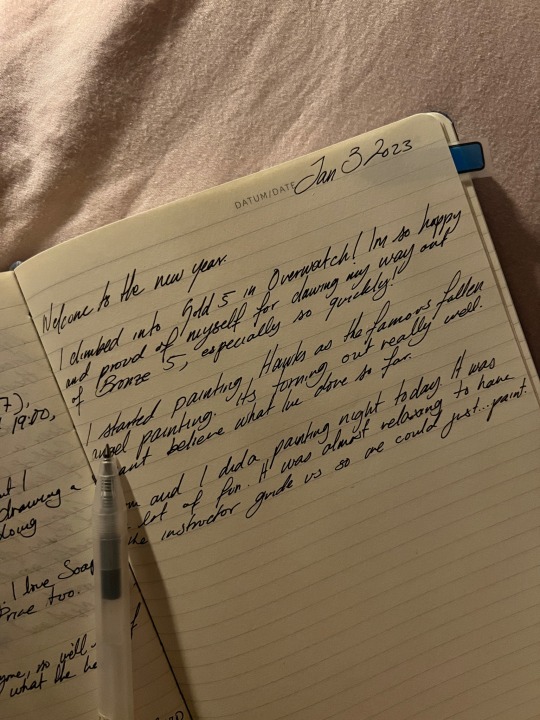 7),
19:00,
but I
drawing a
doing
. I love Soap
Price too.
gone, so will
what the he
DATUM/DATE Jan 3 2023
Welcome to the new year.
I climbed into Gold 5 in Overwatch! Im so happy
and proud of myself for clawing my way out
of Bronze 5, especially so quickly!
I started painting Hawks as the famous fallen
angel painting. Its turning out really well.
cant believe what Ive done so far.
and I did a painting night today. It was
lot of fun. It was almost relaxing to have
the instructor guide us so we could just...paint.